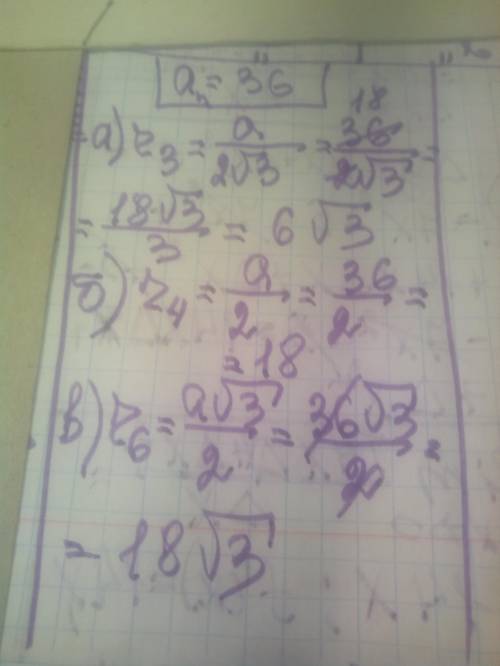 aₙ = 36
а) r₃ = a/(2√3) = 36/(2√3) =
18
= (18·√3)/3 = 6√3
б) r₄ = a/2 = 36/2 =
= 18
в) r₆ = (a√3)/2 = (36√3)/2 =
= 18√3